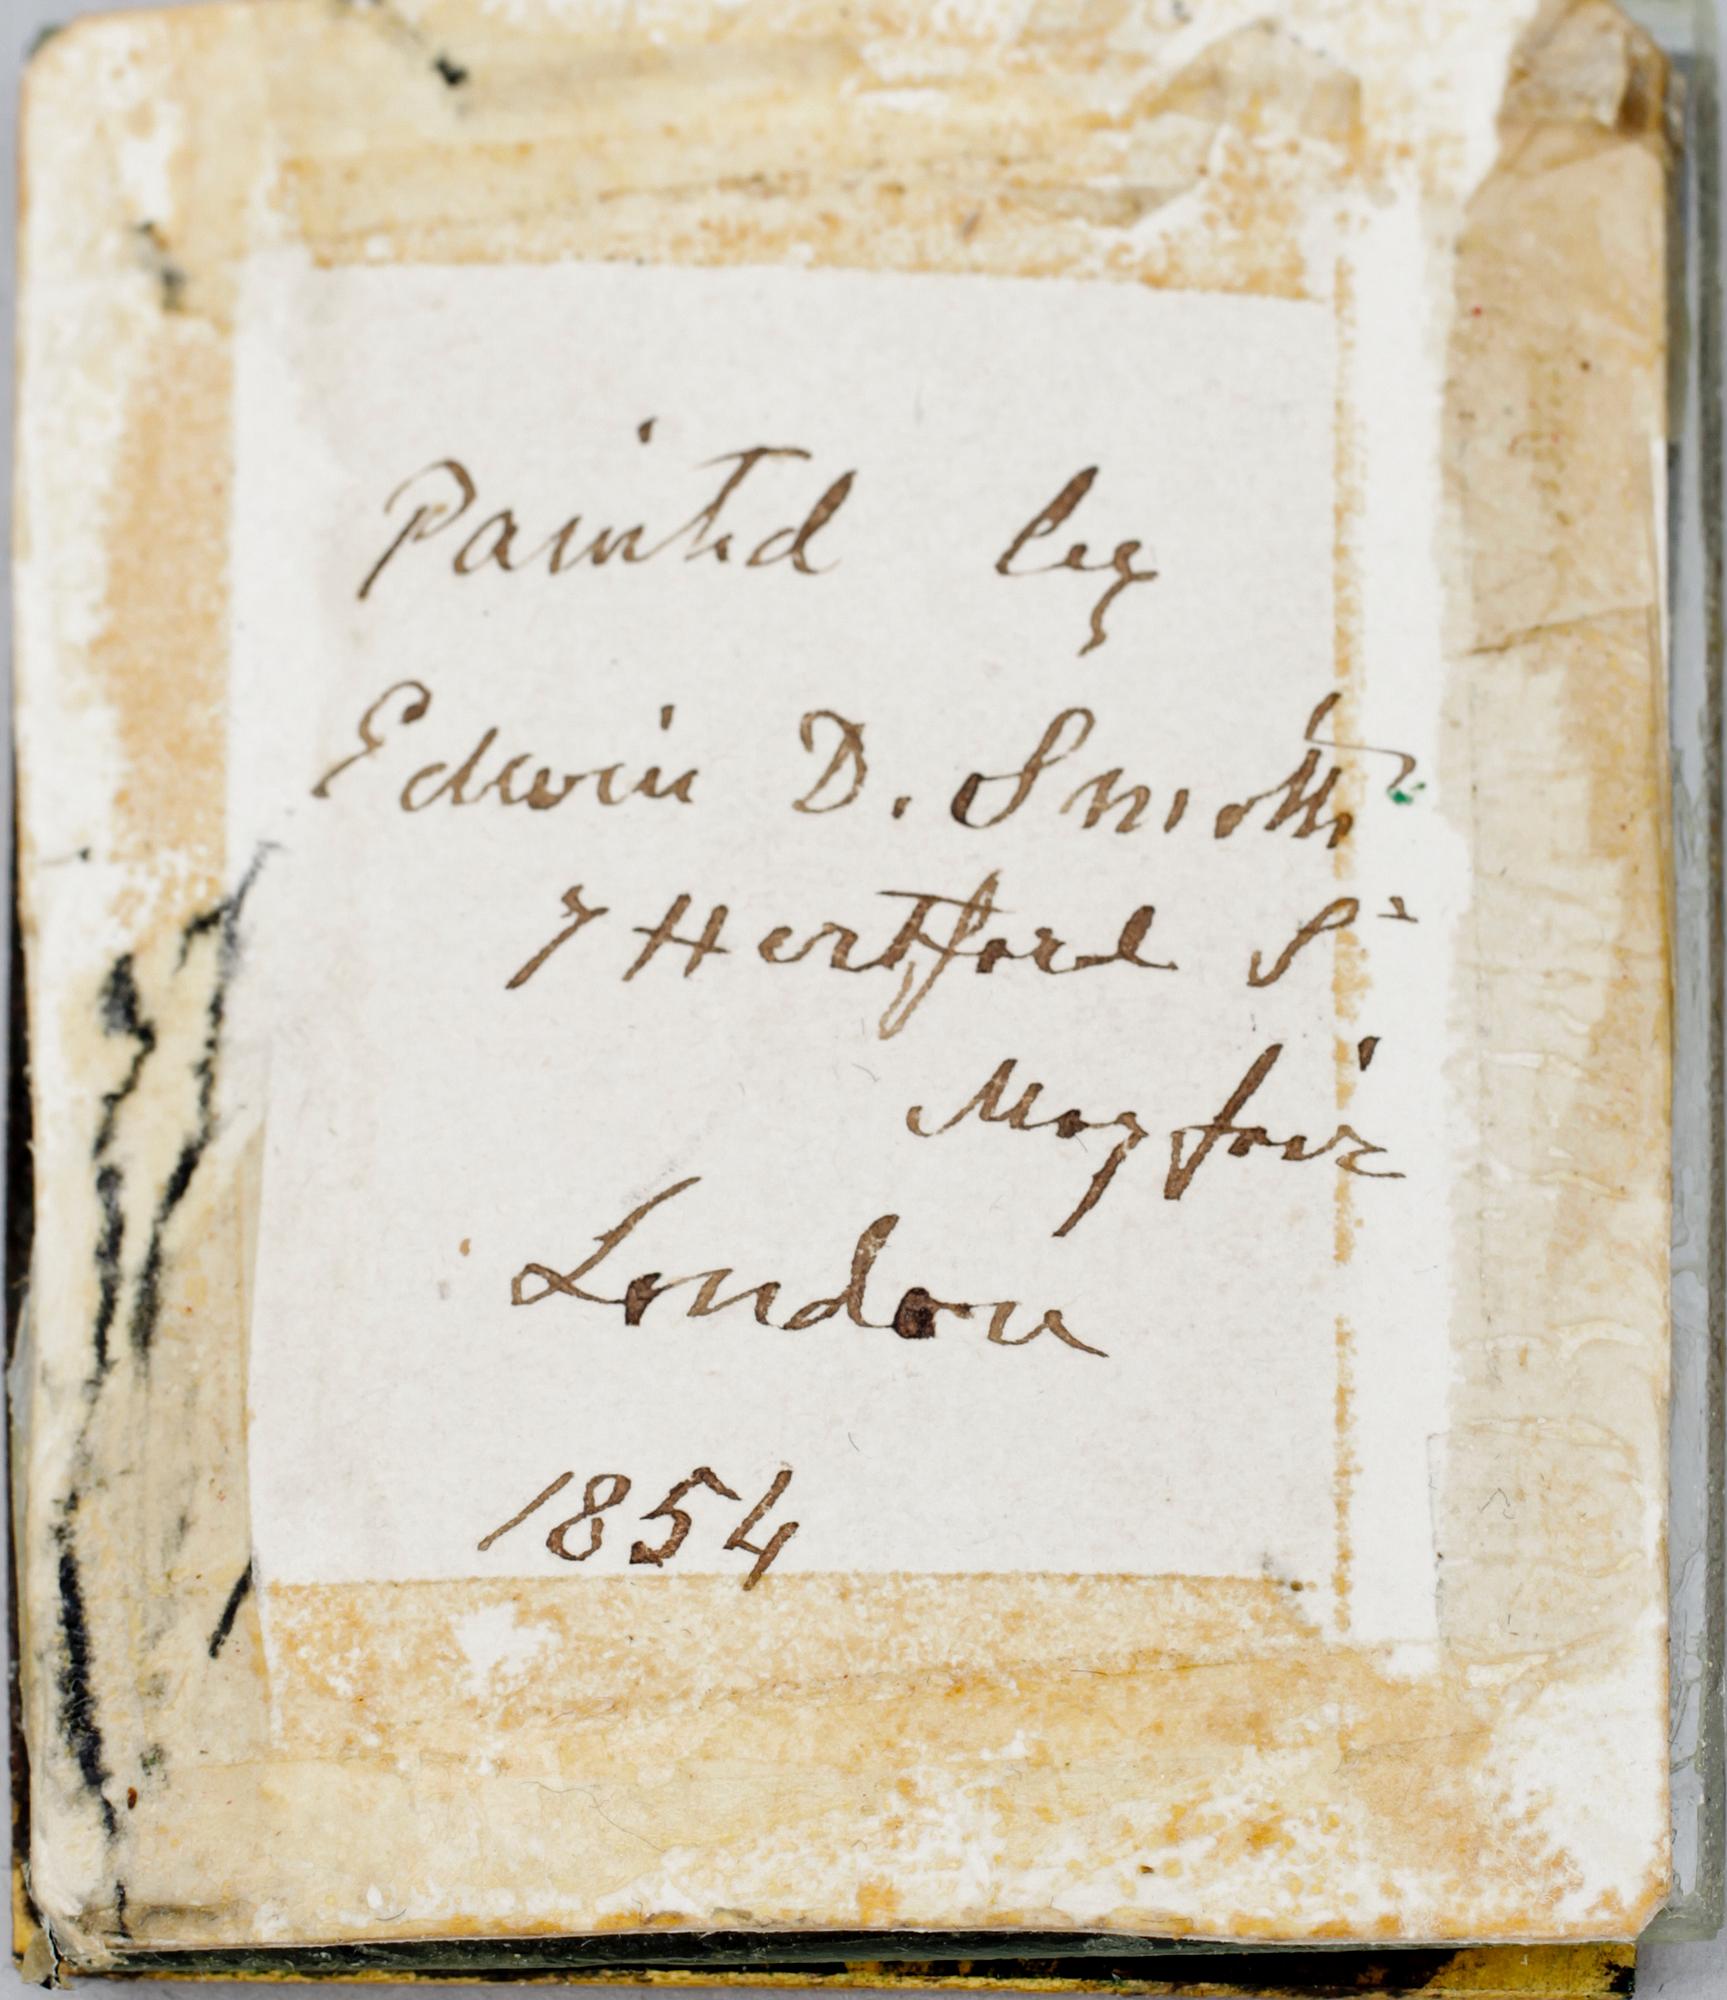 Painted by
Edwin D. Smith
7 Hertford St
Mayfair
London
1854